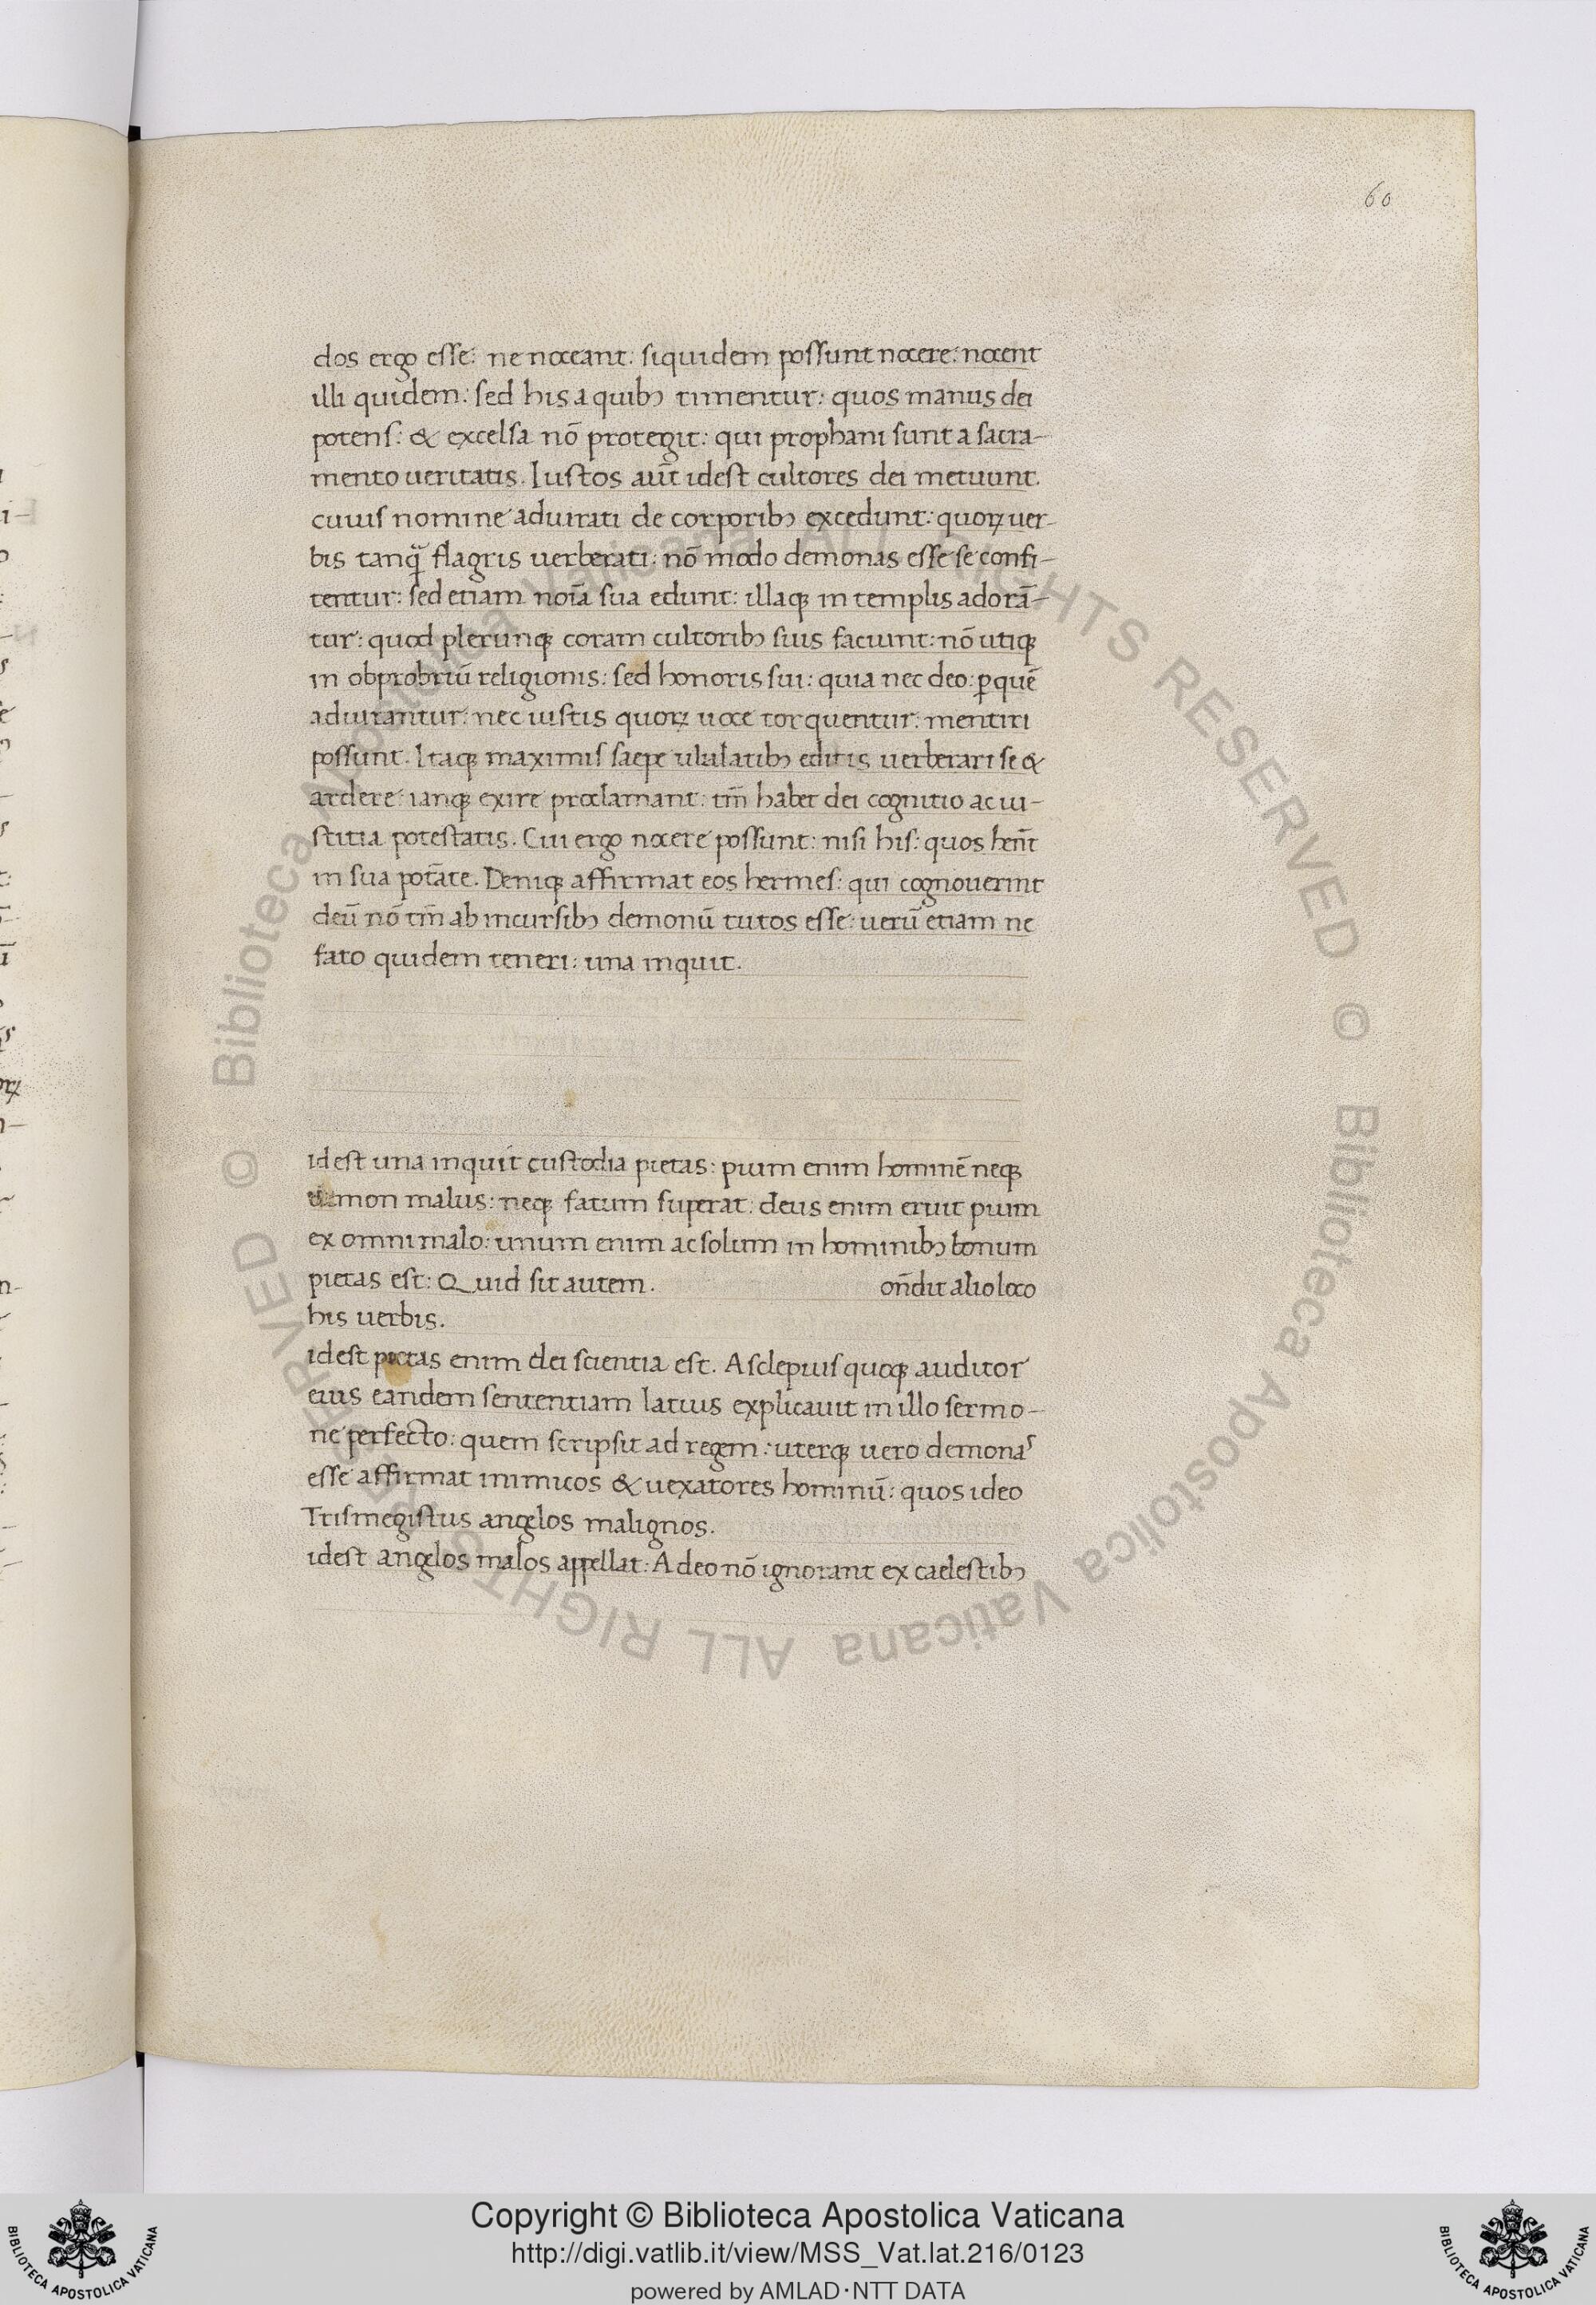 60
dos ergo esse: ne noceant: siquidem possunt nocere: nocent
illi quidem: sed his a quibꝫ timentur: quos manus dei
potens: & excelsa nō protegit: qui prophani sunt a sacra-
mento ueritatis. Iustos aut̄ idest cultores dei metuunt.
cuius nomine adiurati de corporibꝫ excedunt: quoꝝ uer-
bis tanq̄ flagris uerberati: nō modo demonas esse se confi-
tentur: sed etiam noīa sua edunt: illaqꝫ in templis adorā-
tur: quod plerunqꝫ coram cultoribꝫ suis faciunt: nō utiqꝫ
in obprobriū religionis: sed honoris sui: quia nec deo: ꝑ quē
adiurantur: nec iustis quoꝝ uoce torquentur: mentiri
possunt. Itaqꝫ maximis saepe ululatibꝫ editis uerberari se &
ardere: ianqꝫ exire proclamant: tm̄ habet dei cognitio ac iu-
stitia potestatis. Cui ergo nocere possunt: nisi his: quos hēnt
in sua potāte. Deniqꝫ affirmat eos hermes: qui cognouerint
deū nō tm̄ ab incursibꝫ demonū tutos esse: uerū etiam ne
fato quidem teneri: una inquit.
idest una inquit custodia pietas: pium enim hominē neqꝫ
demon malus: neqꝫ fatum superat: deus enim eruit pium
ex omni malo: unum enim ac solum in hominibꝫ bonum
pietas est: Quid sit autem. on̄dit alio loco
his uerbis.
idest pietas enim dei scientia est. Asclepius quoqꝫ auditor
eius eandem sententiam latius explicauit in illo sermo-
ne perfecto: quem scripsit ad regem: uterqꝫ uero demonas
esse affirmat inimicos & uexatores hominū: quos ideo
Trismegistus angelos malignos.
idest angelos malos appellat: Adeo nō ignorant ex caelestibꝫ
© Biblioteca Apostolica Vaticana ALL RIGHTS RESERVED
© Biblioteca Apostolica Vaticana ALL RIGHTS RESERVED
Copyright © Biblioteca Apostolica Vaticana
http://digi.vatlib.it/view/MSS_Vat.lat.216/0123
powered by AMLAD·NTT DATA
BIBLIOTECA APOSTOLICA VATICANA
BIBLIOTECA APOSTOLICA VATICANA